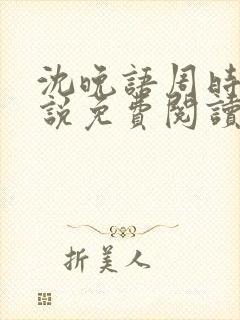 沈晚語周時
說免費閱讀
折美人